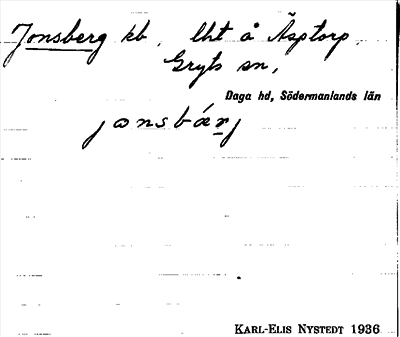 Jonsberg kb, lht å Äsptorp,
Gryts sn,
Daga hd, Södermanlands län
jɔnsbærj
KARL-ELIS NYSTEDT 1936